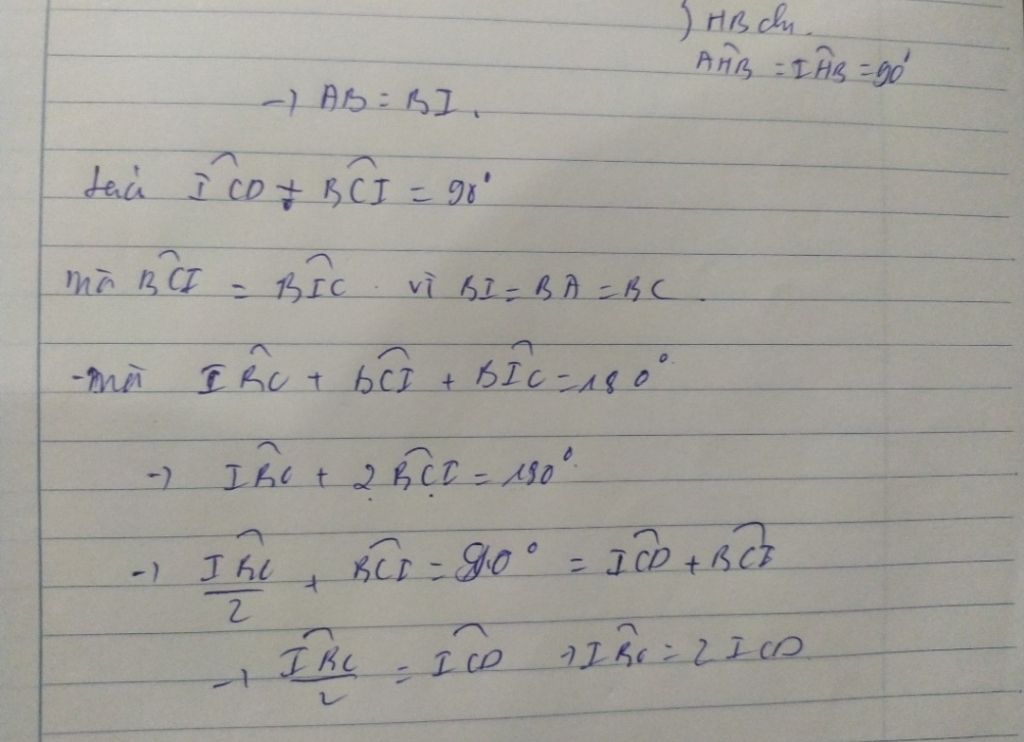 } HB chu.
AĤB = IĤB = 90°
→ AB = BI.
IĈD + BĈI = 90°
mà BĈI = BÎC vì BI = BA = BC.
- mà IB̂C + BĈI + BÎC = 180°
→ IB̂C + 2BĈI = 180°
→ IB̂C/2 + BĈI = 90° = IĈD + BĈI
→ IB̂C/2 = IĈD → IB̂C = 2ICD